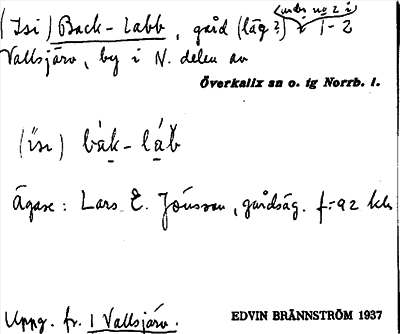 (under no 2 i)
(Isi) Back-Labb, gård (låg?) i 1-2
Vallsjärv, by i N. delen av
Överkalix sn o. tg Norrb. l.
(ịsi) bák-láb̆
Ägare: Lars E. Jönsson, gårdsäg. f. 92
Uppg. fr. 1 Vallsjärv.
EDVIN BRÄNNSTRÖM 1937